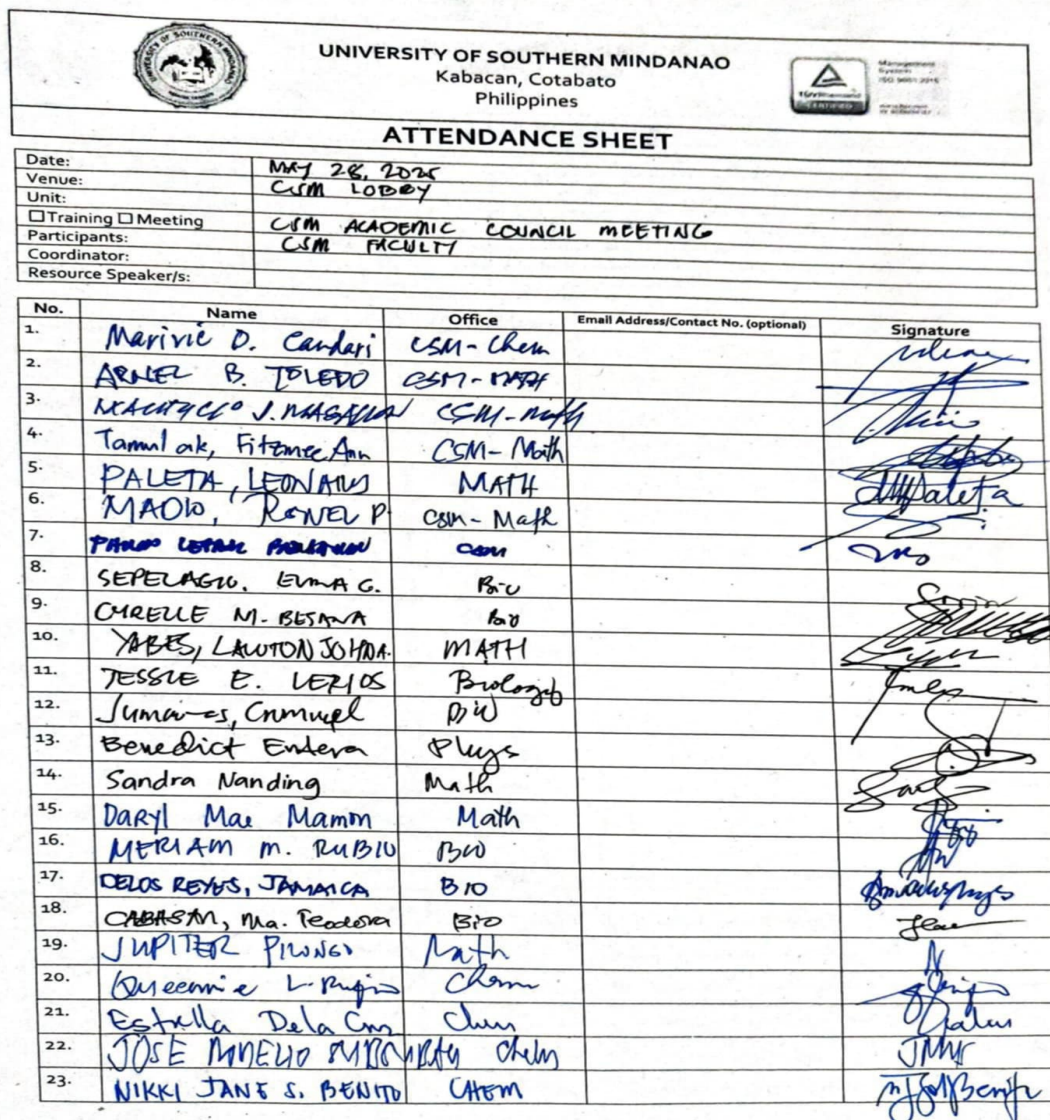 UNIVERSITY OF SOUTHERN MINDANAO
Kabacan, Cotabato
Philippines
UNIVERSITY OF SOUTHERN
Management
System
ISO 9001:2015
TÜVRheinland
CERTIFIED
ATTENDANCE SHEET
Date: MAY 28, 2025
Venue: CSM LOBBY
Unit:
☐Training ☐Meeting CSM ACADEMIC COUNCIL MEETING
Participants: CSM FACULTY
Coordinator:
Resource Speaker/s:
No. Name Office Email Address/Contact No. (optional) Signature
1. Marivic D. Candari CSM-Chem
2. ARNEL B. TOLEDO CSM-MATH
3. J. CSM-math
4. Tamulak, Fitzmee Ann CSM-Math
5. PALETA, LEONARD MATH
6. RONEL P. CSM-Math
7. CSM
8. SEPELAGIO, ELMA G. Bio
9. CYRELLE M. BESANA Bio
10. YABES, LAWTON JOHN A. MATH
11. JESSIE E. LERIOS Biology
12. Bio
13. Benedict Entera Phys
14. Sandra Nanding Math
15. Daryl Mae Mamon Math
16. MERIAM M. RUBIO BIO
17. DELOS REYES, JAMAICA BIO
18. CABASAN, Ma. Teodora BIO
19. JUPITER PILONGO Math
20. Queennie L. Rufino Chem
21. Estrella Dela Cruz Chem
22. JOSE Chem
23. NIKKI JANE S. BENITO CHEM